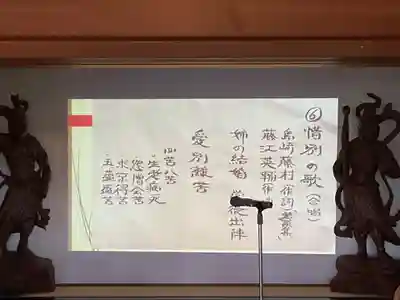 ⑥惜別の歌(合唱)
島崎藤村 作詞
藤江英輔作
姉の結婚 学徒出陣
愛別離苦
四苦八苦
・生老病死
怨憎会苦
求不得苦
・五蘊盛苦